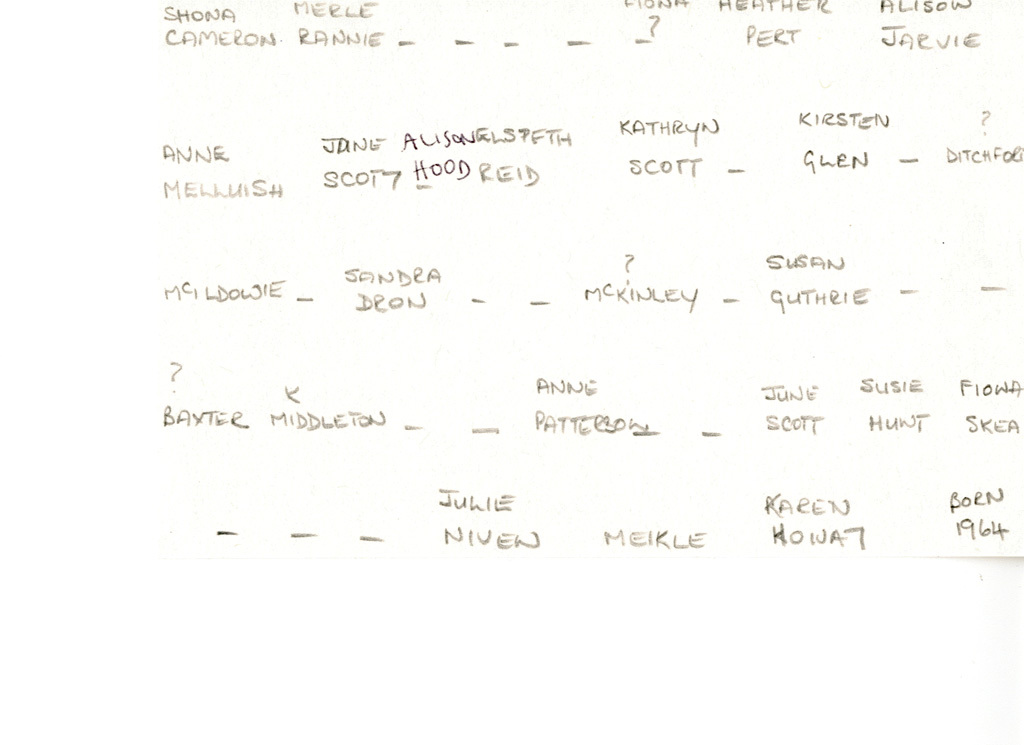 SHONA MERLE FIONA HEATHER ALISON
CAMERON RANNIE - - - - - ? PERT JARVIE
ANNE JANE ALISON ELSPETH KATHRYN KIRSTEN ?
MELLUISH SCOTT - HOOD REID SCOTT - GLEN - DITCHFOR
SANDRA ? SUSAN
McILDOWIE - DRON - - McKINLEY - GUTHRIE - -
? K ANNE JUNE SUSIE FIONA
BAXTER MIDDLETON - - PATTERSON - - SCOTT HUNT SKEA
JULIE KAREN BORN
- - - NIVEN MEIKLE HOWAT 1964